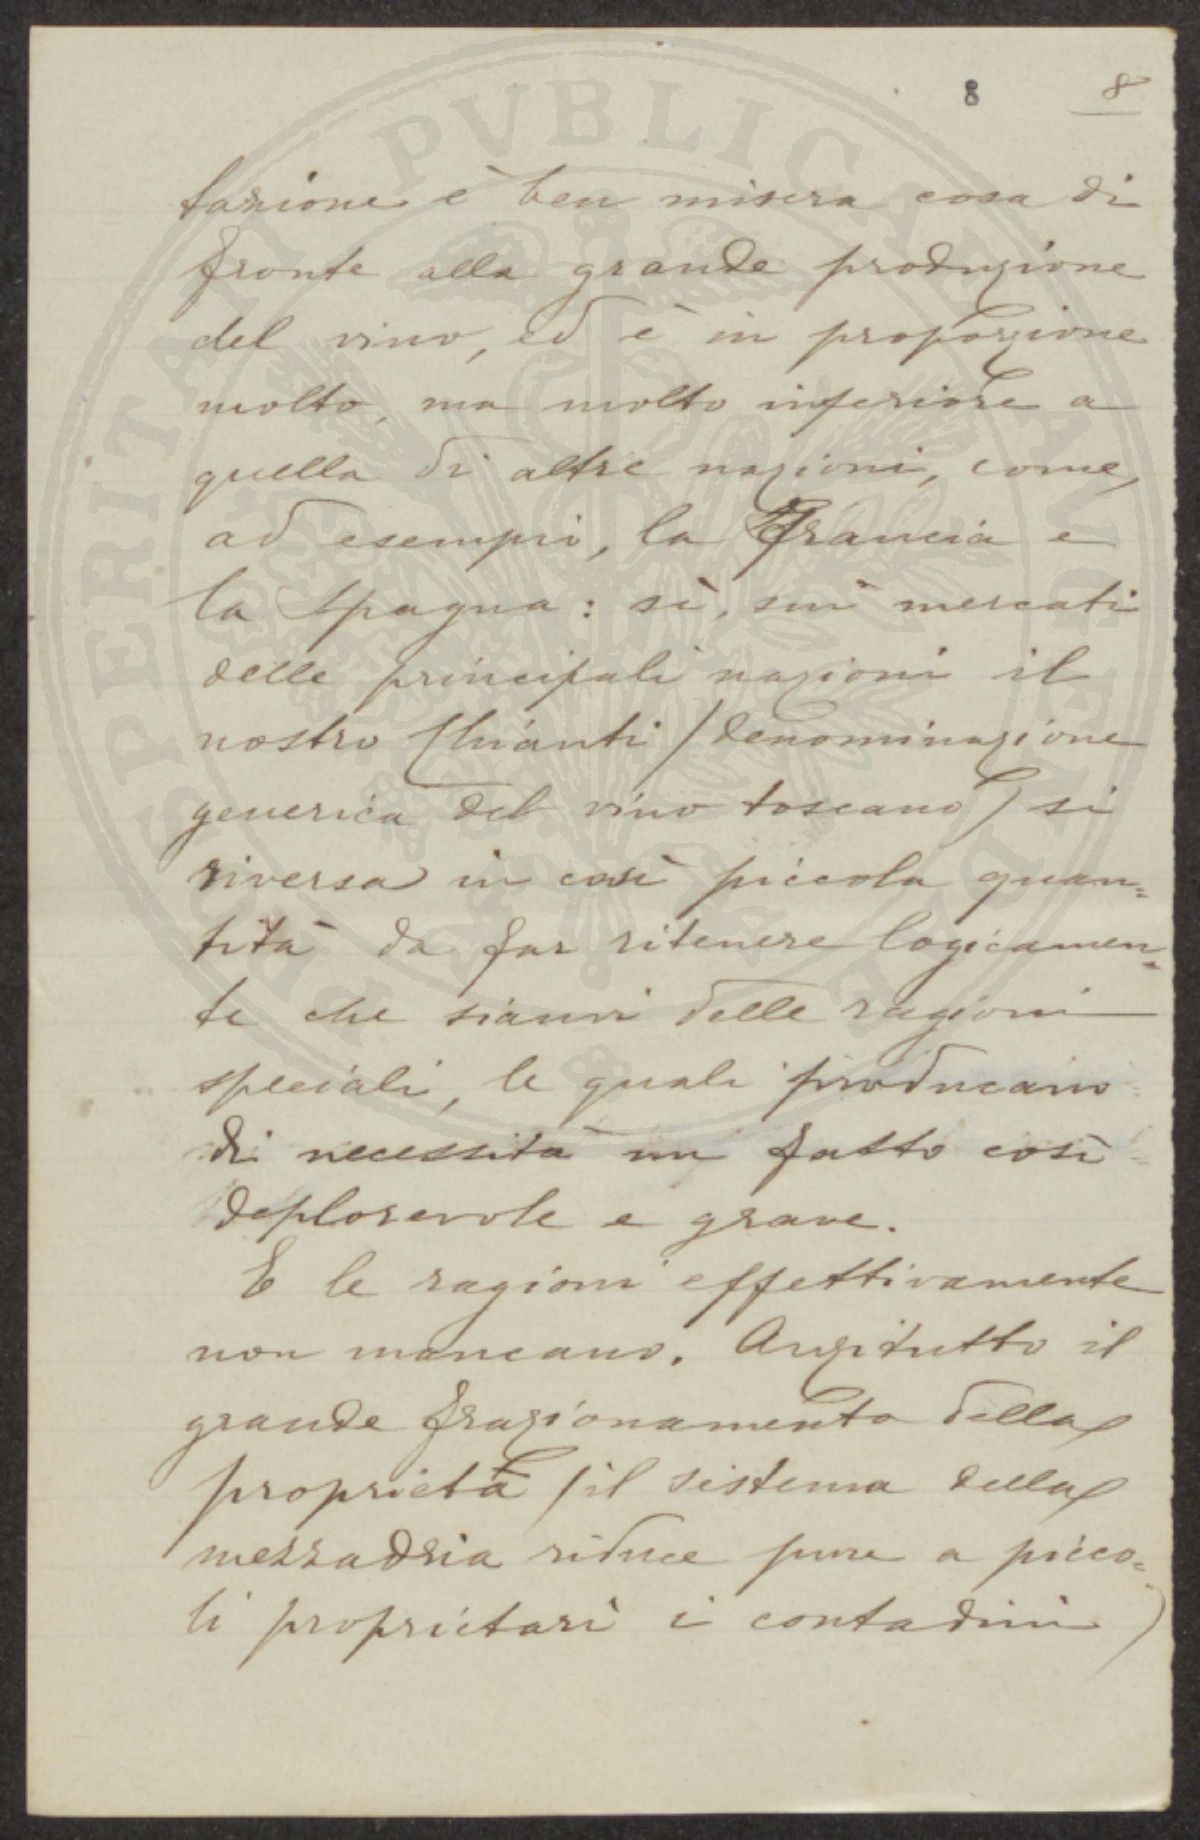 8 8
tazione è ben misera cosa di
fronte alla grande produzione
del vino, ed è in proporzione
molto, ma molto inferiore a
quella di altre nazioni, come,
ad esempio, la Francia e
la Spagna: sì, sui mercati
delle principali nazioni il
nostro Chianti (denominazione
generica del vino toscano) si
riversa in così piccola quan=
tità da far ritenere logicamen=
te che sianvi delle ragioni
speciali, le quali producano
di necessità un fatto così
deplorevole e grave.
E le ragioni effettivamente
non mancano. Anzitutto il
grande frazionamento della
proprietà (il sistema della
mezzadria riduce pure a picco=
li proprietari i contadini)
PROSPERITATI PVBLICAE AVGENDAE